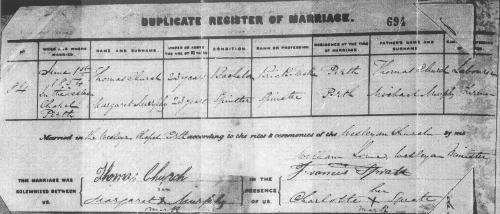 DUPLICATE REGISTER OF MARRIAGE. 694
WHEN AND WHERE MARRIED NAME AND SURNAME UNDER OR ABOVE THE AGE CONDITION RANK OR PROFESSION RESIDENCE AT THE TIME OF MARRIAGE FATHER'S NAME AND SURNAME
June 1st Thomas Church 23 years Bachelor Perth Thomas Church Laborer
In the Church Perth Margaret Murphy 23 years Spinster Spinster Perth Michael Murphy
Married in the Wesleyan Chapel according to the rites & ceremonies of the Wesleyan Church by me
William Wesleyan Minister
THE MARRIAGE WAS SOLEMNIZED BETWEEN US. Thomas Church IN THE PRESENCE OF US. Francis Spratt
her her
Margaret x Murphy Charlotte x
mark mark